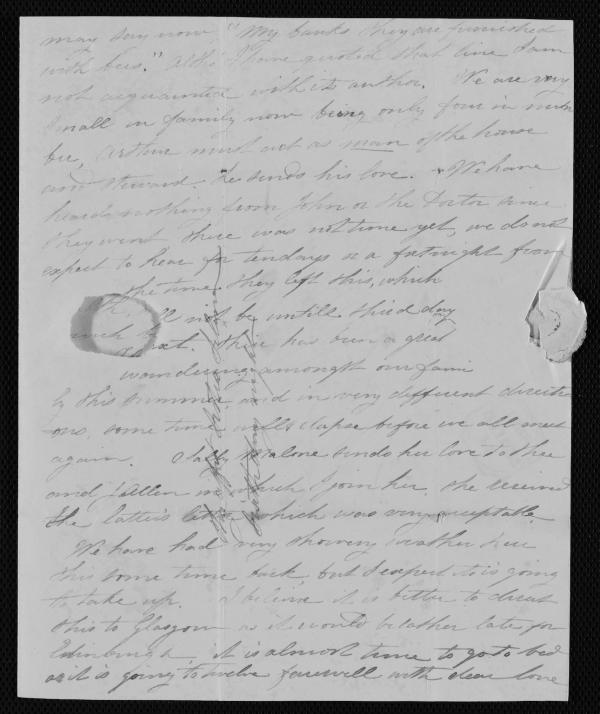 may say now "My banks they are furnished
with bees." altho' I have quoted that line I am
not acquainted with its author. We are very
small in family now being only four in num
ber, Arthur must act as man of the house
and steward. He sends his love. We have
heard nothing from John or the Doctor since
they went there was not time yet, we do not
expect to hear for ten days or a fortnight from
the time they left this, which
will not be untill third day
next. There has been a great
wandering amongst our fami
ly this summer and in very different directi
ons, some time will elapse before we all meet
again. Sally Malone sends her love to thee
and J Allen in which I join her. She received
the latter's letter which was very acceptable
We have had very showery weather here
this some time back, but I expect it is going
to take up. I believe it is better to direct
this to Glasgow as it would be rather late for
Edinburgh it is almost time to go to bed
as it is going to twelve farewell with dear love